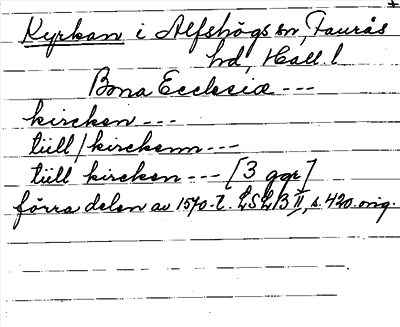 Kyrkan i Alfshögs sn, Faurås
hd, Hall. l
Bona Ecclesiæ ---
kircken ---
tiill / kirckenn ---
tiill kircken --- [3 ggr]
förra delen av 1570-t. LSLB II, s. 420. orig.